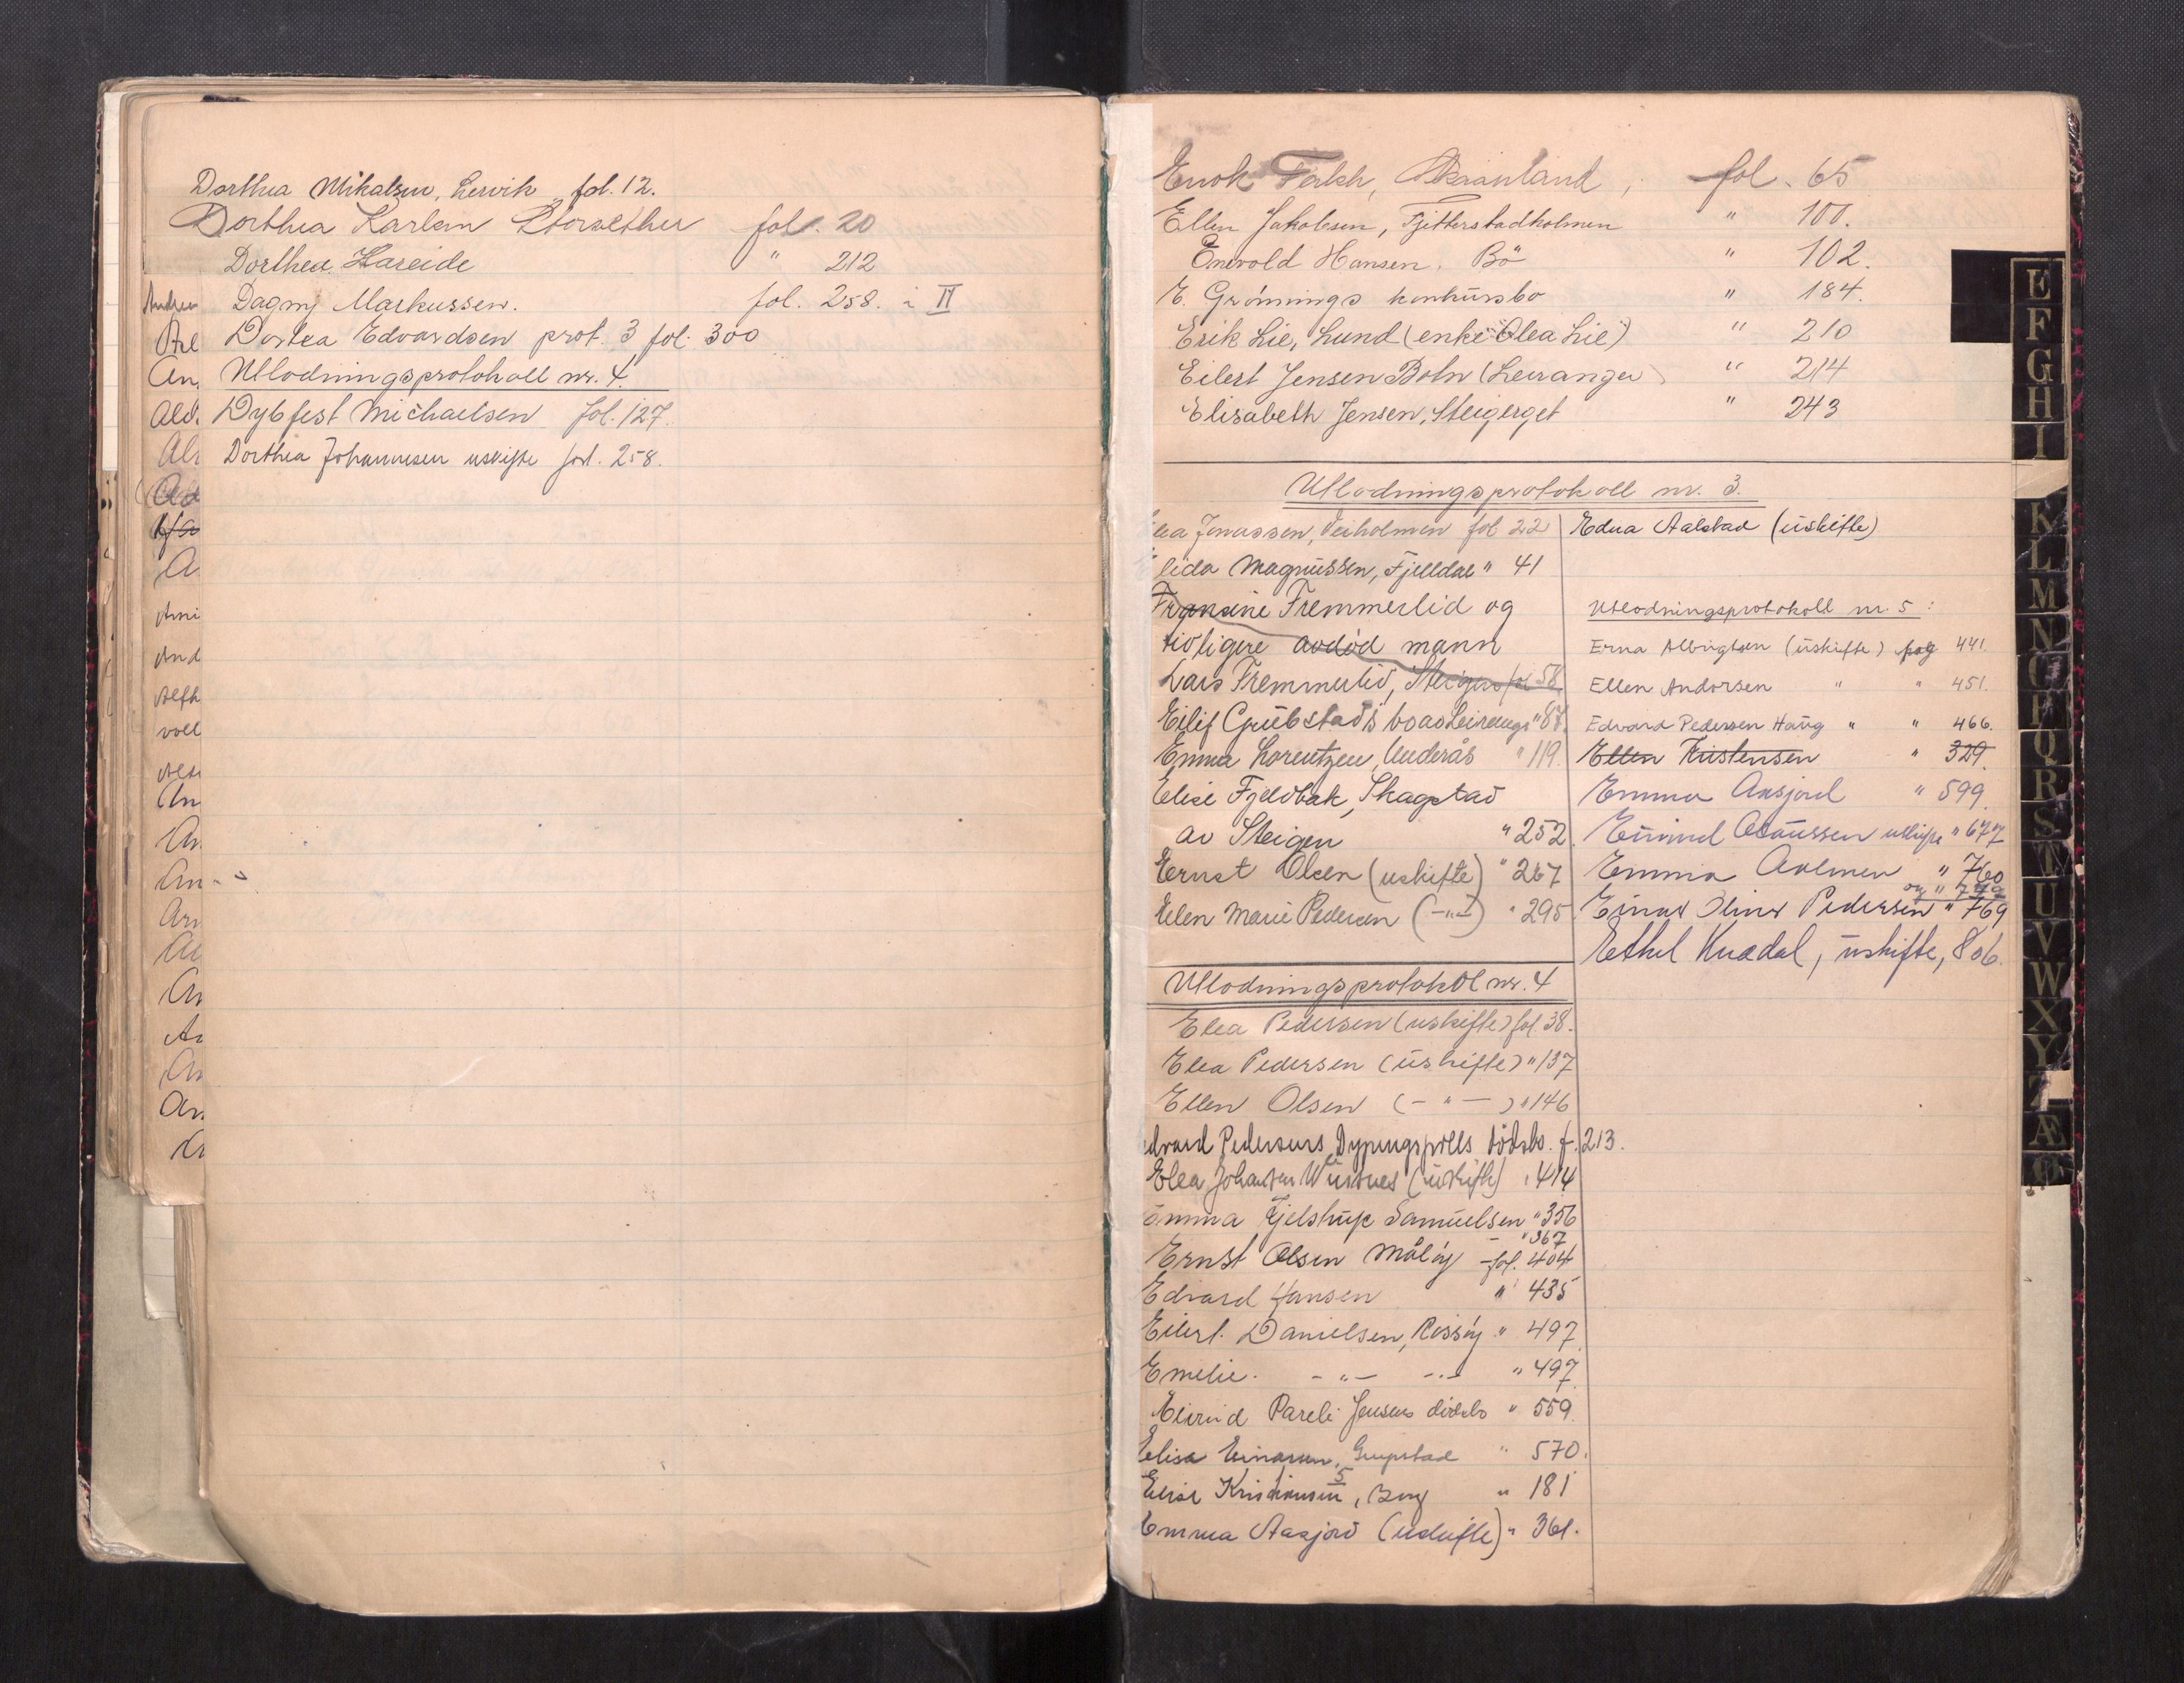 Dorthea Mikalsen, Lervik fol. 12.
Dorthea Karlsen Storsether fol. 20
Dorthea Hareide " 212
Dagny Markussen. fol. 258. i II
Dortea Edvardsen prot. 3 fol. 300
Utlodningsprotokoll nr. 4.
Dybfest Michaelsen fol. 127.
Dorthea Johannesen uskifte fol. 258.
Enok Falch, Skaanland, fol. 65
Ellen Jakobsen, Fjetterstadholmen " 100.
Enevold Hansen, Bö " 102.
E. Grönnings konkursbo " 184.
Erik Lie, Lund (enke Olea Lie) " 210
Eilert Jensen Botn (Leiranger) " 214
Elisabeth Jensen, Steigerget " 243
Utlodningsprotokoll nr. 3.
Elea Jonassen, Veiholmen fol 22
lida Magnussen, Fjelldal " 41
Fransine Fremmerlid og
tidligere avdöd mann
Lars Fremmerlid, Steigen fol 58
Eilif Grubstads boas Leiranger " 87.
Emma Lorentzen, Underås " 119.
Elise Fjeldbak, Skagstad
av Steigen " 252
Ernst Olsen (uskifte) " 267
Ellen Marie Pedersen (-"-) " 295
Edna Aalstad (uskifte)
Utlodningsprotokoll nr. 5:
Erna Albrigtsen (uskifte) pag 441.
Ellen Andorsen " " 451.
Edvard Pedersen Haug " " 466.
Ellen Kristensen " 329.
Emma Aasjord " 599.
Edmund Clausen uskifte " 677
Emma Aalmen " 760
og " 779
Einar Oliver Pedersen " 769
Ethel Knædal, uskifte, 806.
Utlodningsprotokoll nr. 4
Elea Pedersen (uskifte) fol. 38.
Elea Pedersen (uskifte) " 137
Ellen Olsen (- " -) " 146
Edvard Pedersens, Dypingspolls dödsbo. f. 213.
Elea Johansen Wustnes (uskifte) " 414
Emma Fjelstrup Samuelsen " 356
- " 367
Ernst Olsen Måløy - fol. 404
Edvard Hansen " 435
Eilert Danielsen, Rossöy " 497
Emelie - " - - " - " 497
Eivind Pareli Jensens dödsbo " 559.
Elisa Einarsen, Grupstad " 570.
5
Elise Kristiansen, Bog " 181
Emma Aasjord (uskifte) " 361.
E
F
G
H
I
K
L
M
N
O
P
Q
R
S
T
U
V
W
X
Y
Z
Æ
Ø